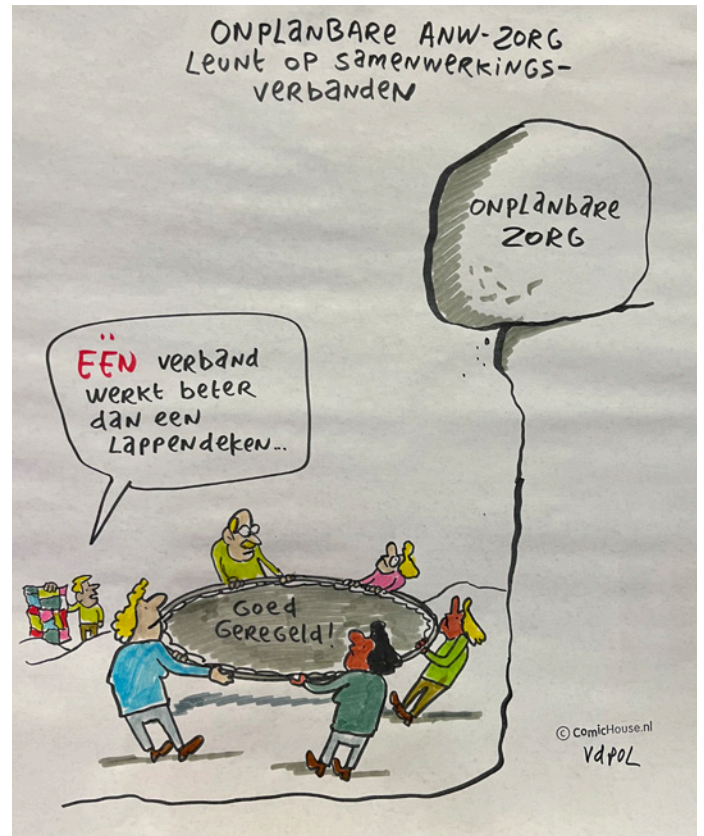 ONPLANBARE ANW-ZORG
LEUNT OP SAMENWERKINGS-
VERBANDEN
ONPLANBARE
ZORG
ËËN VERBAND
WERKT BETER
DAN EEN
LAPPENDEKEN...
GOED
GEREGELD!
© ComicHouse.nl
VdPOL